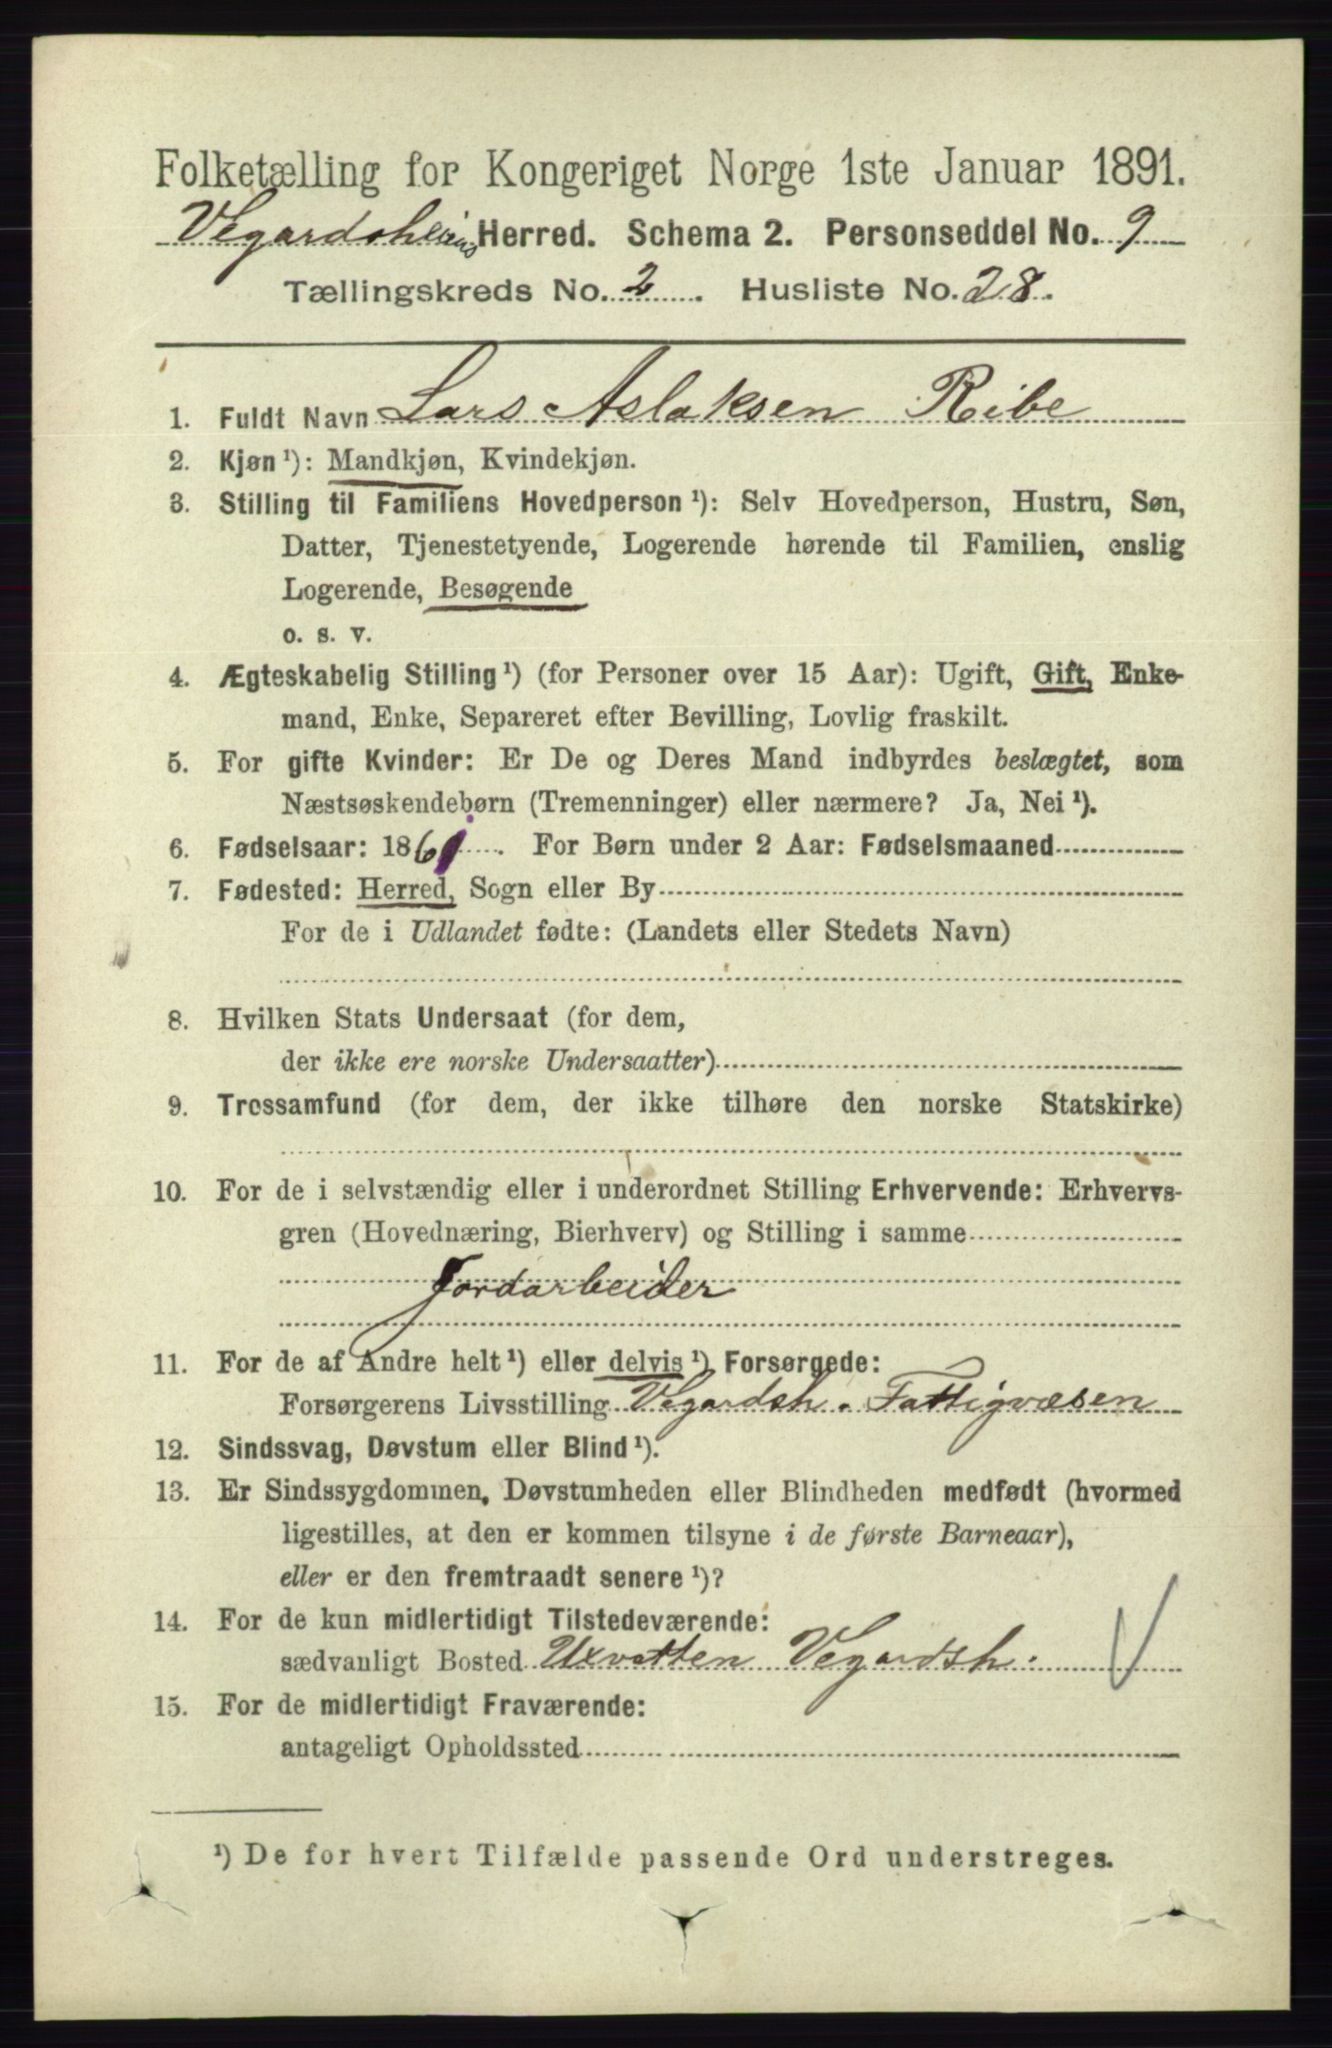 Folketælling for Kongeriget Norge 1ste Januar 1891.
Vegardsheiens Herred. Schema 2. Personseddel No. 9
Tællingskreds No. 2. Husliste No. 28.
1. Fuldt Navn Lars Aslaksen Ribe
2. Kjøn ¹): Mandkjøn, Kvindekjøn.
3. Stilling til Familiens Hovedperson ¹): Selv Hovedperson, Hustru, Søn,
Datter, Tjenestetyende, Logerende hørende til Familien, enslig
Logerende, Besøgende
o. s. v.
4. Ægteskabelig Stilling ¹) (for Personer over 15 Aar): Ugift, Gift, Enke-
mand, Enke, Separeret efter Bevilling, Lovlig fraskilt.
5. For gifte Kvinder: Er De og Deres Mand indbyrdes beslægtet, som
Næstsøskendebørn (Tremenninger) eller nærmere? Ja, Nei ¹).
6. Fødselsaar: 1861. For Børn under 2 Aar: Fødselsmaaned
7. Fødested: Herred, Sogn eller By
For de i Udlandet fødte: (Landets eller Stedets Navn)
8. Hvilken Stats Undersaat (for dem,
der ikke ere norske Undersaatter)
9. Trossamfund (for dem, der ikke tilhøre den norske Statskirke)
10. For de i selvstændig eller i underordnet Stilling Erhvervende: Erhvervs-
gren (Hovednæring, Bierhverv) og Stilling i samme
Jordarbeider
11. For de af Andre helt ¹) eller delvis ¹) Forsørgede:
Forsørgerens Livsstilling Vegardsh. Fattigvæsen
12. Sindssvag, Døvstum eller Blind ¹).
13. Er Sindssygdommen, Døvstumheden eller Blindheden medfødt (hvormed
ligestilles, at den er kommen tilsyne i de første Barneaar),
eller er den fremtraadt senere ¹)?
14. For de kun midlertidigt Tilstedeværende:
sædvanligt Bosted Uxvatten Vegardsh.
15. For de midlertidigt Fraværende:
antageligt Opholdssted
¹) De for hvert Tilfælde passende Ord understreges.